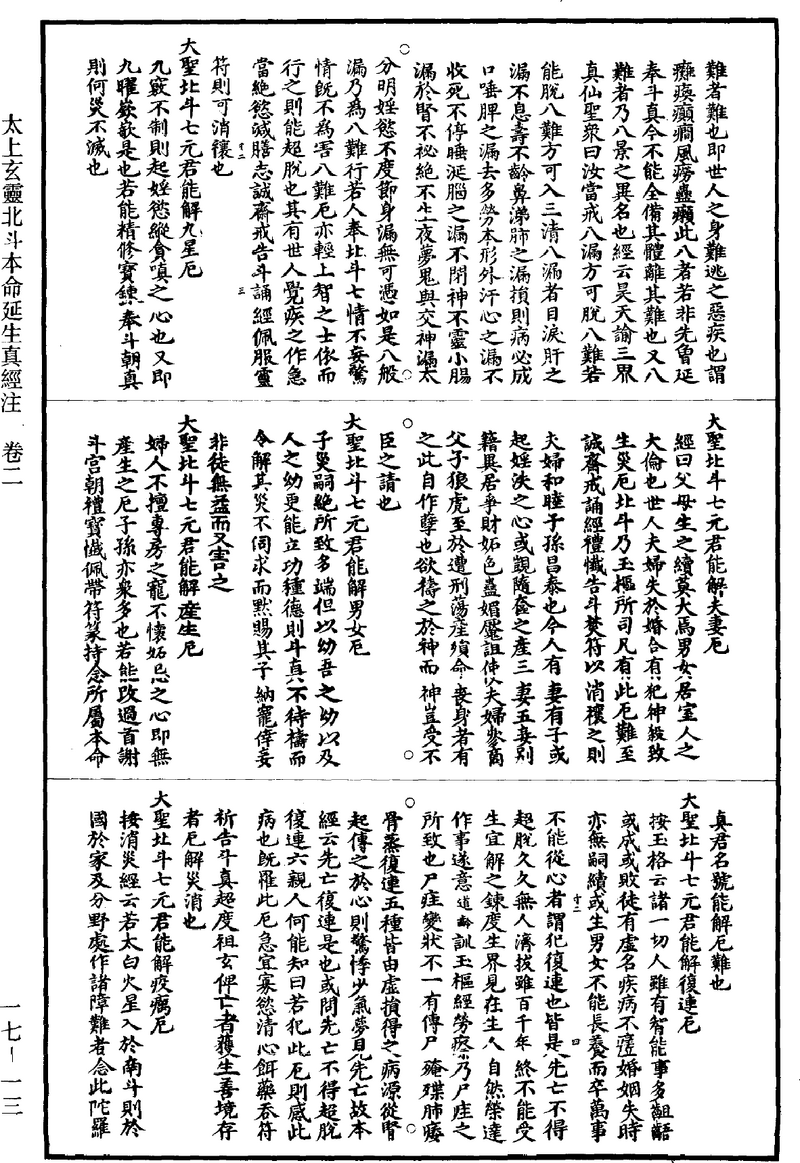 太上玄靈北斗本命延生真經注　卷二
難者難也即世人之身難逃之惡疾也謂
癱瘓癲癇風癆蠱癩此八者若非先魯延
奉斗真令不能全備其體離其難也又八
難者乃八景之異名也經云昊天諭三界
真仙聖眾曰汝當戒八漏方可脫八難若
能脫八難方可入三清八漏者目淚肝之
漏不息壽不齡鼻涕肺之漏損則病必成
口唾脾之漏去多勞本形外汗心之漏不
收死不停睡涎腦之漏不閉神不靈小腸
漏於腎不祕絕不生夜夢鬼與交神漏太
分明婬慾不度節身漏無可憑如是八般
漏乃為八難行若人奉北斗七情不妄驚
情既不為害八難厄亦輕上智之士依而
行之則能超脫也其有世人覺疾之作急
當絕慾減膳志誠齋戒告斗誦經佩服靈
符則可消禳也
十二
三
大聖北斗七元君能解九星厄
九竅不制則起婬慾縱貪嗔之心也又即
九曜嶔崟是也若能精修寶錬奉斗朝真
則何災不滅也
大聖北斗七元君能解夫妻厄
經曰父母生之續莫大焉男女居室人之
大倫也世人夫婦失於婚合有犯神殺致
生災厄北斗乃玉樞所司凡有此厄難至
誠齋戒誦經禮懺告斗焚符以消禳之則
夫婦和睦子孫昌泰也今人有妻有子或
起婬泆之心或覬隨奩之產三妻五妾別
籍異居爭財妬色蠱媚魘詛使夫婦參商
父子狼虎至於遭刑蕩產殞命喪身者有
之此自作孽也欲禱之於神而神豈受不
臣之請也
大聖北斗七元君能解男女厄
子災嗣絕所致多端但以幼吾之幼以及
人之幼更能立功種德則斗真不待禱而
令解其災不伺求而默賜其子納寵倖妾
非徒無益而又害之
大聖北斗七元君能解產生厄
婦人不擅專房之寵不懷妬忌之心即無
產生之厄子孫亦眾多也若能改過首謝
斗宮朝禮寶懺佩帶符篆持念所屬本命
真君名號能解厄難也
大聖北斗七元君能解復連厄
按玉格云諸一切人雖有智能事多齟齬
或成或敗徒有虛名疾病不瘥婚姻失時
亦無嗣續或生男女不能長養而卒萬事
十二
四
不能從心者謂犯復連也皆是先亡不得
超脫久久無人濟拔雖百千年終不能受
生宜解之鍊度生界見在生人自然榮達
作事遂意道齡訓玉樞經勞瘵乃尸疰之
所致也尸疰變狀不一有傳尸殗殜肺痿
骨蒸復連五種皆由虛損得之病源從腎
起傳之於心則驚悸少氣夢見先亡故本
經云先亡復連是也或問先亡不得超脫
復連六親人何能知曰若犯此厄則感此
病也既罹此厄急宜寡慾清心餌藥吞符
祈告斗真超度祖玄俾亡者獲生善境存
者厄解災消也
大聖北斗七元君能解疫癘厄
按消災經云若太白火星入於南斗則於
國於家及分野處作諸障難者念此陀羅
一七ー一三